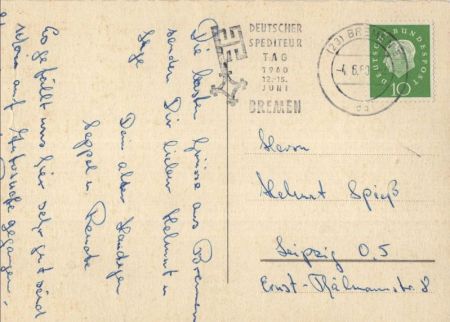 Die besten Grüsse aus Bremen
senden Dir lieber Helmut u
Dein alter
Seppel u
Renate
Es gefällt uns hier sehr gut sind
DEUTSCHER
SPEDITEUR
TAG
1960
12.-15.
JUNI
BREMEN
(23) BREMEN
DEUTSCHE BUNDESPOST
10
Herrn
Helmut Spieß
Leipzig O, 5
Ernst-Thälmannstr. 8